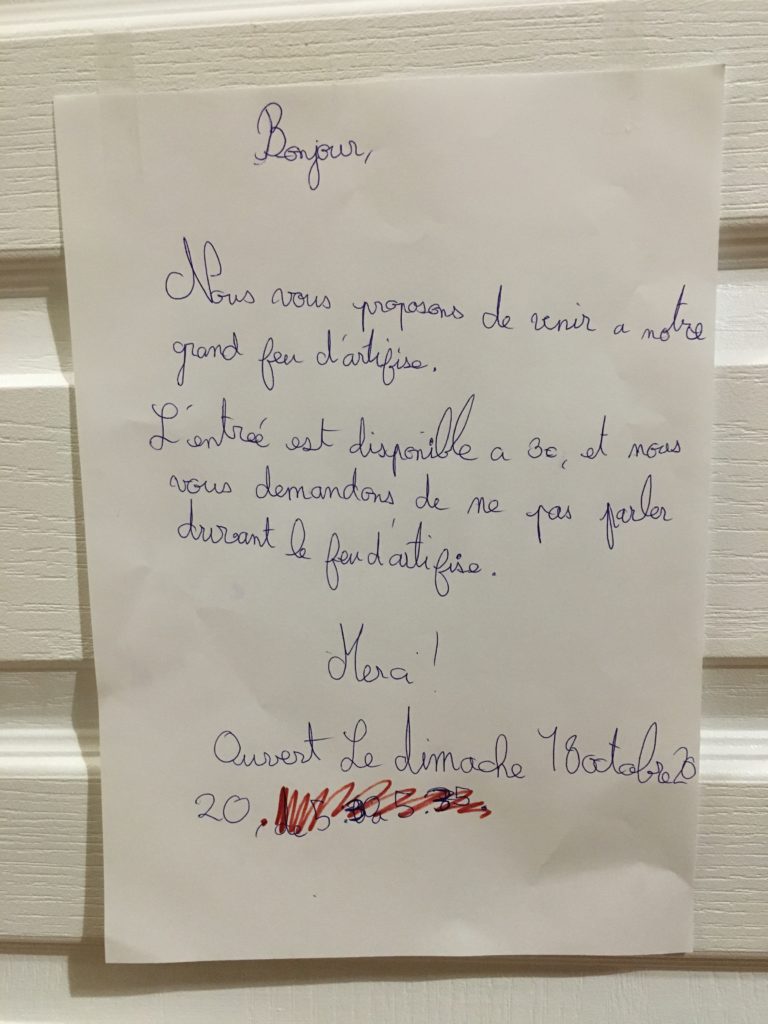 Bonjour,
Nous vous proposons de venir a notre
grand feu d'artifise.
L'entrée est disponible a 3€, et nous
vous demandons de ne pas parler
durant le feu d'artifise.
Merci !
Ouvert Le dimache 18 octobre 20
20.